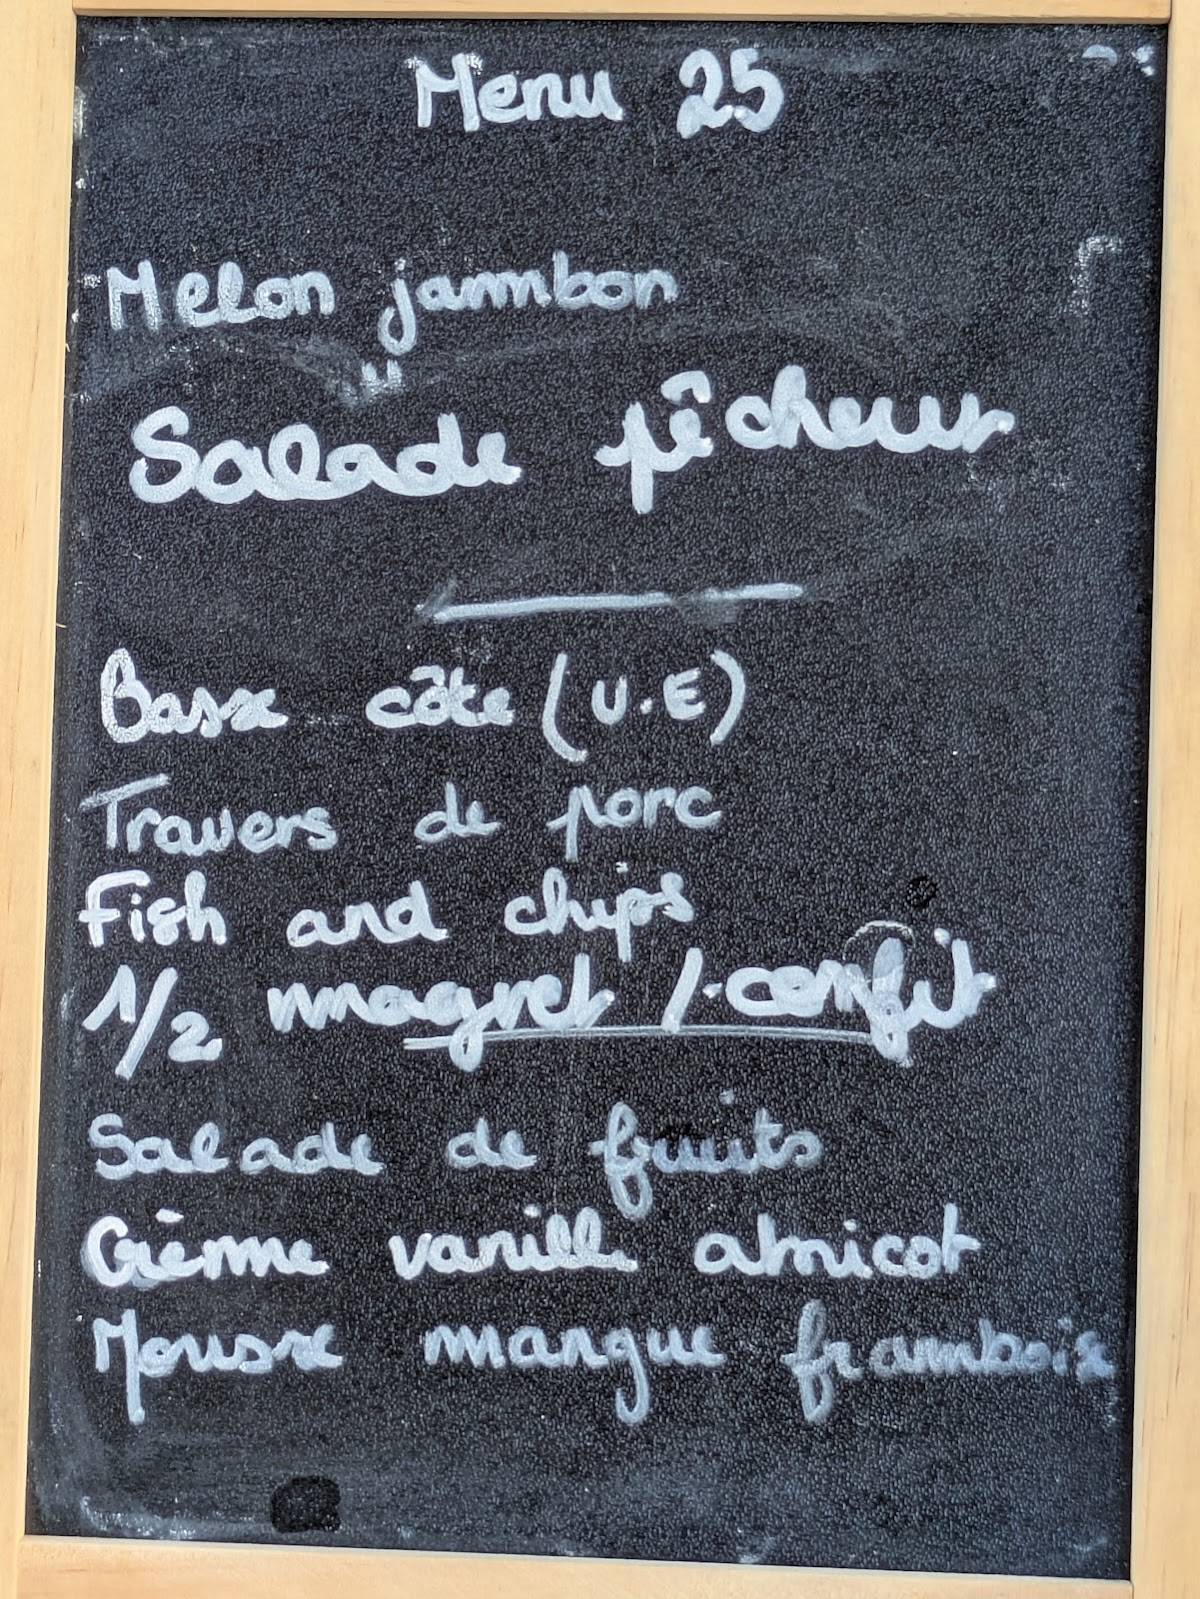 Menu 25
Melon jambon
Salade pêcheur
Basse côte (U.E)
Travers de porc
Fish and chips
1/2 magret / confit
Salade de fruits
Crème vanille abricot
Mousse mangue framboise